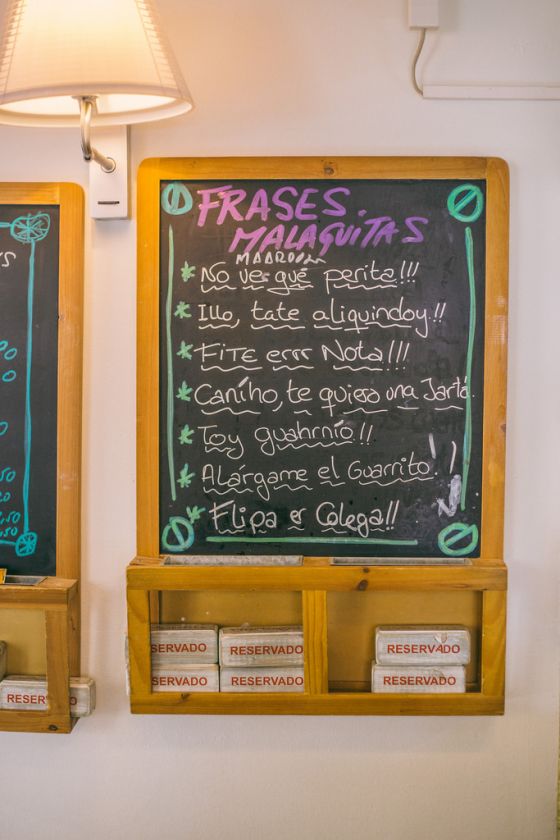 FRASES
MALAQUITAS
No ve qué perita!!!
Illo, tate aliquindoy!!
FiTE errr Nota!!!
Cariño, te quiero una Jartá.
Toy guahrnío!!
Alárgame el Guarrito!!
Flipa er Colega!!
ESERVADO
RESERVADO
RESERVADO
ESERVADO
RESERVADO
RESERVADO
RESER
DO